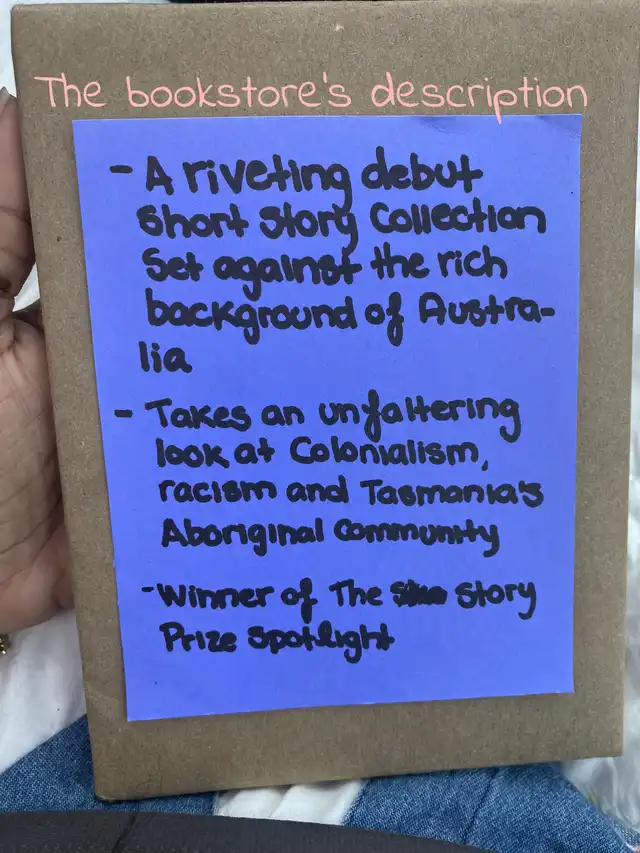 The bookstore's description
- A riveting debut
short story Collection
Set against the rich
background of Austra-
lia
- Takes an unfaltering
look at Colonialism,
racism and Tasmania's
Aboriginal Community
- Winner of The Story
Prize Spotlight